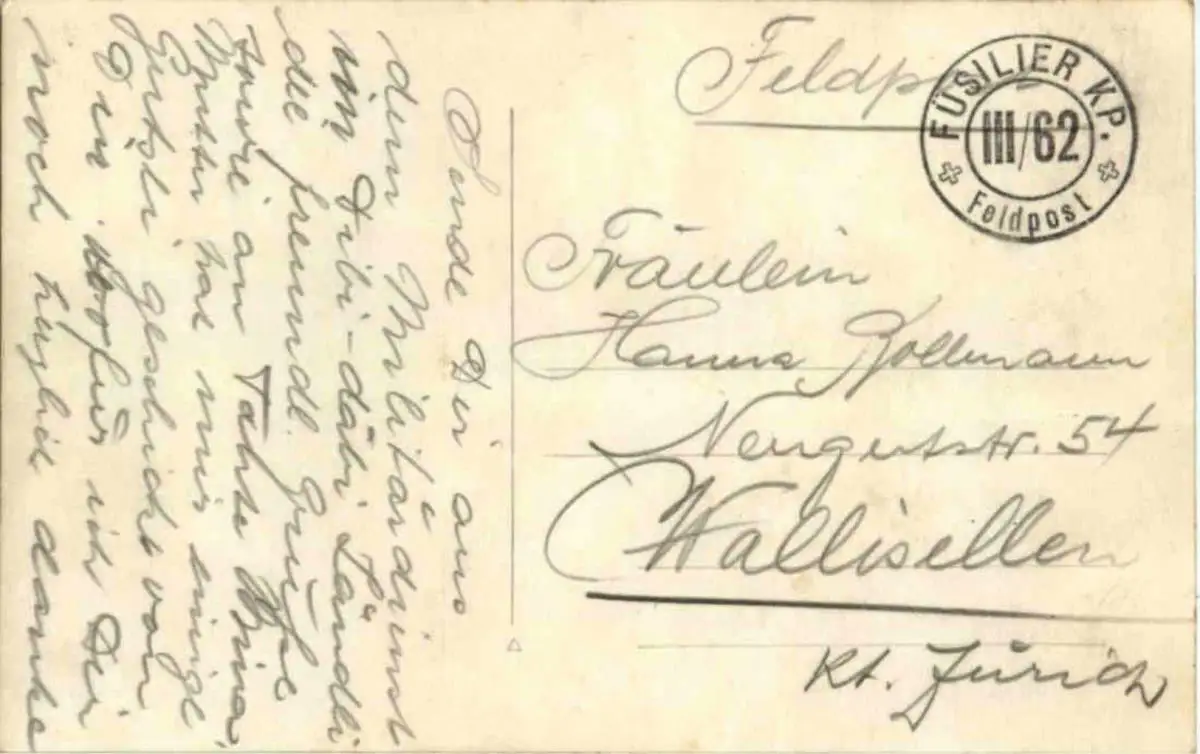 Feldp
FÜSILIER KP.
III/62
Feldpost
Fräulein
Hanna Bollmann
Neugutstr. 54
Wallisellen
Kt. Zürich
Sende Dir aus
dem Militärdienst
im Dibi-däbi Ländli
die freundl. Grüsse
sowie an Tante Bina
Mutter hat mir einige
Gutsli geschickt von
Dir wofür ich Dir
noch herzlich danke